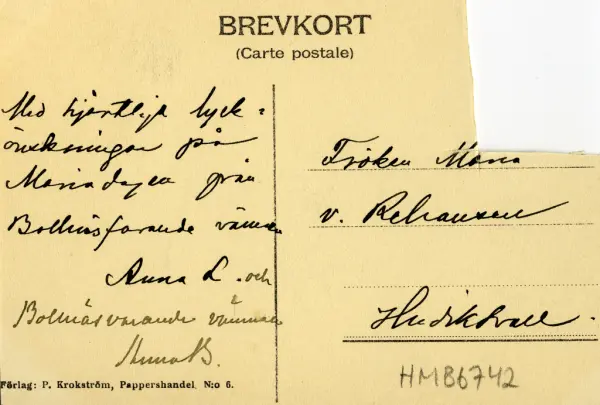 BREVKORT
(Carte postale)
Med hjärtliga lyck-
önskningar på
Mariadagen från
Bollnäsfarande vännen
Anna L. och
Bollnäsvarande vännen
Anna B.
Fröken Maria
v. Rehausen
Hudiksvall.
Förlag: P. Krokström, Pappershandel. N:o 6.
HMB6742